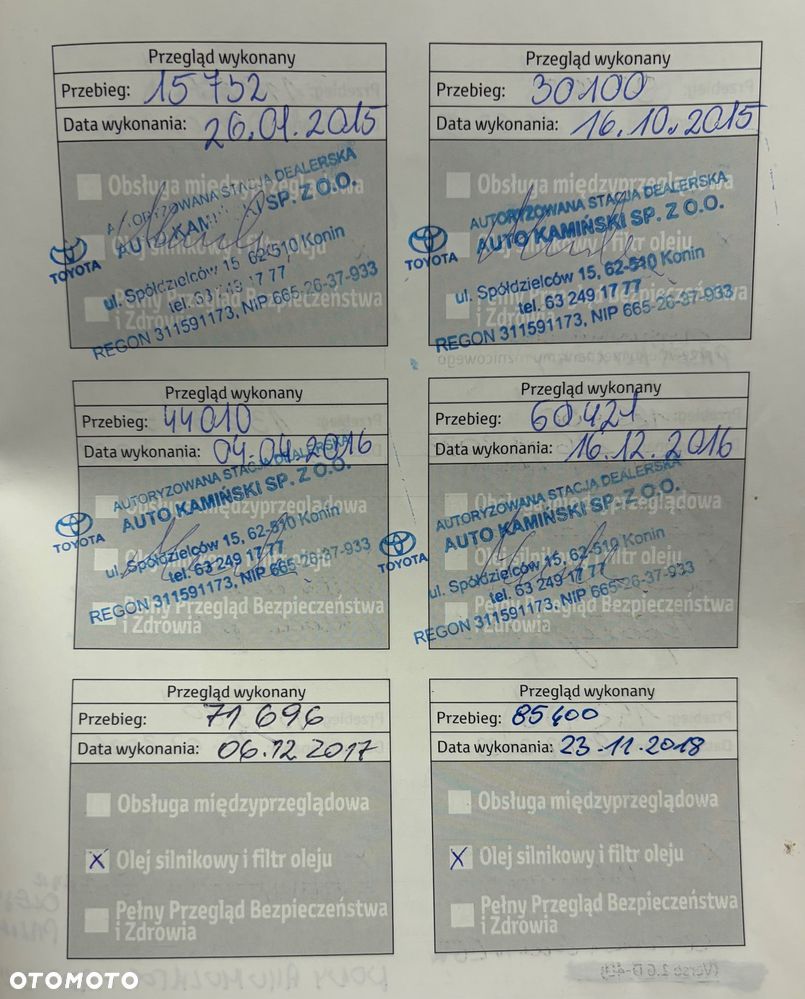 Przegląd wykonany
Przebieg: 15 752
Data wykonania: 26.01.2015
Obsługa międzyprzeglądowa
AUTORYZOWANA STACJA DEALERSKA
AUTO KAMIŃSKI SP. Z O.O.
TOYOTA
ul. Spółdzielców 15 62-510 Konin
tel. 63 249 17 77
REGON 311591173, NIP 665-26-37-933
Pełny Przegląd Bezpieczeństwa
i Zdrowia
Przegląd wykonany
Przebieg: 30100
Data wykonania: 16.10.2015
Obsługa międzyprzeglądowa
AUTORYZOWANA STACJA DEALERSKA
AUTO KAMIŃSKI SP. Z O.O.
filtr oleju
TOYOTA
ul. Spółdzielców 15, 62-510 Konin
tel. 63 249 17 77
REGON 311591173, NIP 665-26-37-933
Pełny Przegląd Bezpieczeństwa
i Zdrowia
Przegląd wykonany
Przebieg: 44010
Data wykonania: 04.04.2016
AUTORYZOWANA STACJA DEALERSKA
AUTO KAMIŃSKI SP. Z O.O.
Obsługa międzyprzeglądowa
TOYOTA
ul. Spółdzielców 15, 62-510 Konin
tel. 63 249 17 77
REGON 311591173, NIP 665-26-37-933
Pełny Przegląd Bezpieczeństwa
i Zdrowia
Przegląd wykonany
Przebieg: 60421
Data wykonania: 16.12.2016
AUTORYZOWANA STACJA DEALERSKA
AUTO KAMIŃSKI SP. Z O.O.
Obsługa międzyprzeglądowa
TOYOTA
Olej silnikowy i filtr oleju
ul. Spółdzielców 15, 62-510 Konin
tel. 63 249 17 77
REGON 311591173, NIP 665-26-37-933
Pełny Przegląd Bezpieczeństwa
i Zdrowia
Przegląd wykonany
Przebieg: 71 696
Data wykonania: 06.12.2017
Obsługa międzyprzeglądowa
X Olej silnikowy i filtr oleju
Pełny Przegląd Bezpieczeństwa
i Zdrowia
Przegląd wykonany
Przebieg: 85400
Data wykonania: 23-11-2018
Obsługa międzyprzeglądowa
X Olej silnikowy i filtr oleju
Pełny Przegląd Bezpieczeństwa
i Zdrowia
OTOMOTO